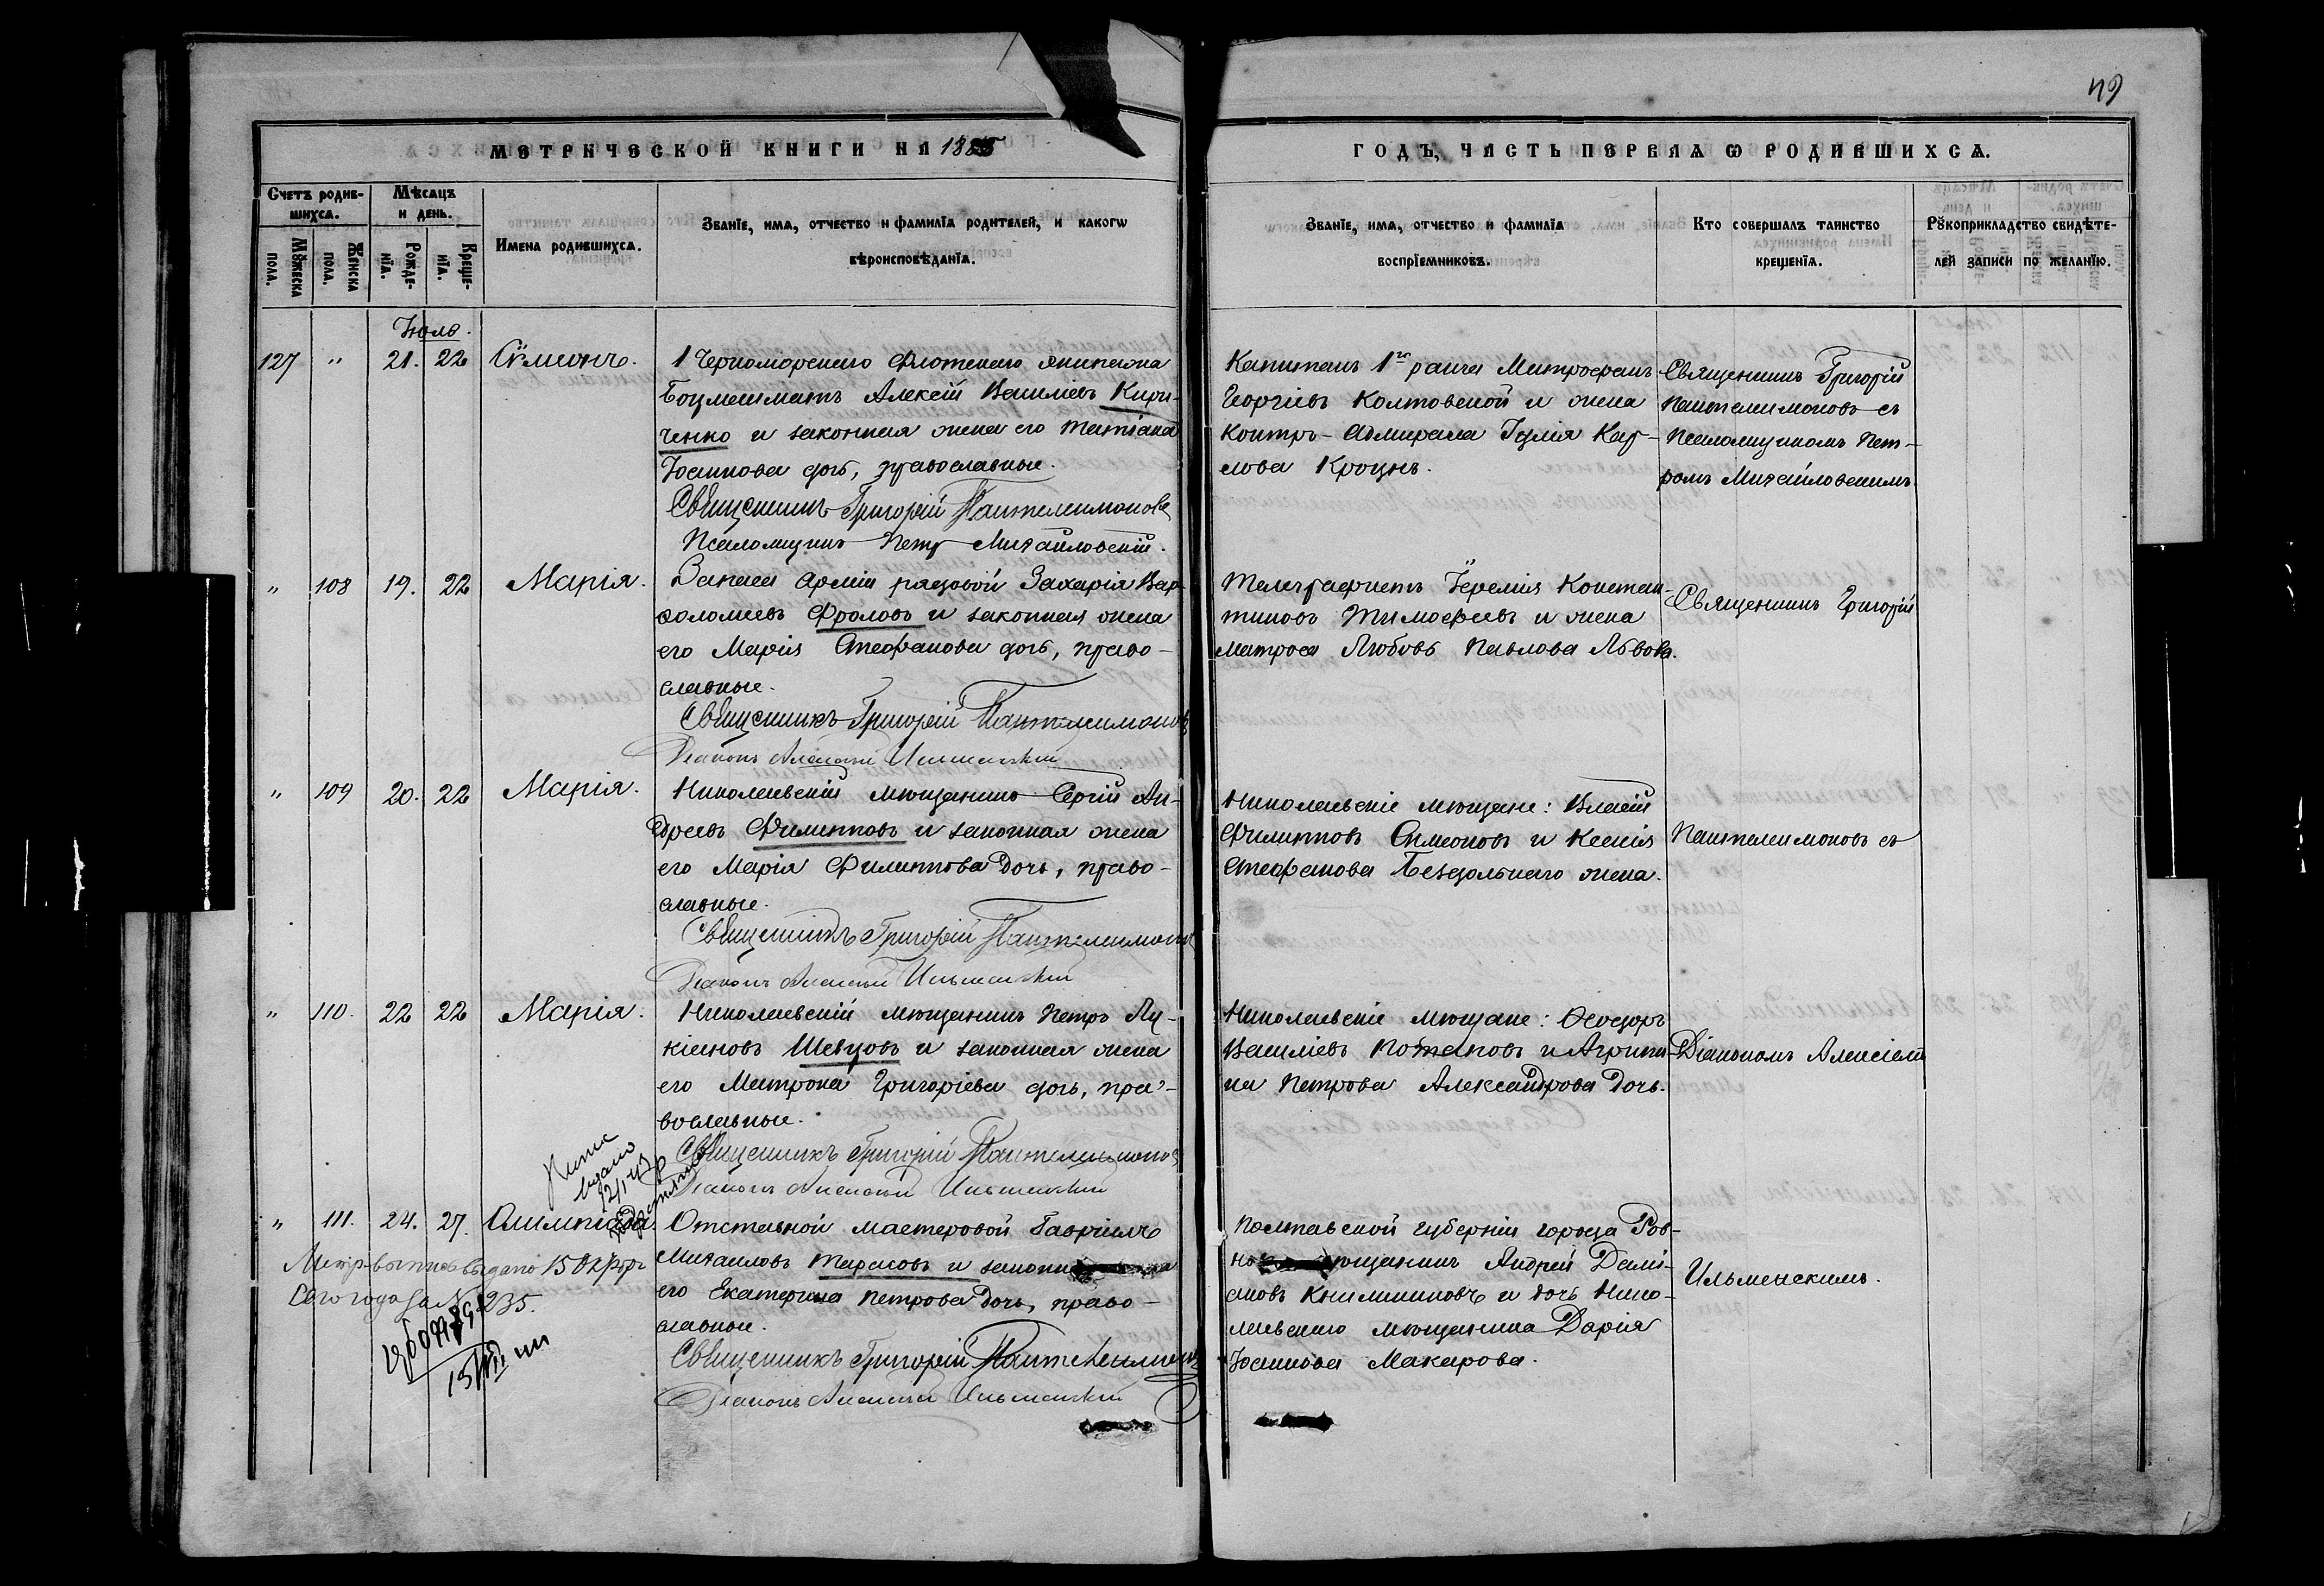 49
МЕТРИЧЕСКОЙ КНИГИ НА 1885
ГОДЪ, ЧАСТЬ ПЕРВАЯ Ѡ РОДИВШИХСѦ.
Счетъ родив-
шихсѧ.
Мѣсѧцъ
и день.
Мꙋжеска
пола.
Женска
пола.
Рожде-
нїѧ.
Креще-
нїѧ.
Имена родившихсѧ.
Званїе, имѧ, отчество и фамилїѧ родителей, и какогѡ
вѣроисповѣданїѧ.
Званїе, имѧ, отчество и фамилїѧ
воспрїемниковъ.
Кто совершалъ таинство
крещенїѧ.
Рꙋкоприкладство свидѣте-
лей записи по желанїю.
Іюль.
127 " 21. 22 Сѵмеонъ.
1 Черноморскаго Флотскаго экипажа
Боцманматъ Алексій Василіевъ Кири-
ченко и законная жена его Татіана
Іоаннова дочь, православные.
Священникъ Григорій Пантелеимоновъ
Псаломщикъ Петръ Михайловскій.
Капитанъ 1го ранга Митрофанъ
Георгіевъ Колтовской и жена
Контръ-Адмирала Іулія Кар-
лова Кроунъ.
Священникъ Григорій
Пантелеимоновъ съ
Псаломщикомъ Пет-
ромъ Михайловскимъ
" 108 19. 22 Марія.
Запаса Арміи рядовой Захарія Вар-
ѳоломеевъ Фроловъ и законная жена
его Марія Стефанова дочь, право-
славные.
Священникъ Григорій Пантелеимоновъ
Діаконъ Алексій Ильменскій
Телеграфистъ Іеремія Констан-
тиновъ Тимофеевъ и жена
Матроса Любовь Павлова Львова.
Священникъ Григорій
" 109 20. 22 Марія.
Николаевскій мѣщанинъ Сергій Ан-
дреевъ Филипповъ и законная жена
его Марія Филиппова дочь, право-
славные.
Священникъ Григорій Пантелеимоновъ
Діаконъ Алексій Ильменскій
Николаевскіе мѣщане: Власій
Филипповъ Симоновъ и Ксенія
Стефанова Бездольнаго жена.
Пантелеимоновъ съ
" 110. 22 22 Марія.
Николаевскій мѣщанинъ Петръ Лу-
кіановъ Шевцовъ и законная жена
его Матрона Григоріева дочь, пра-
вославные.
Священникъ Григорій Пантелеимоновъ
Діаконъ Алексій Ильменскій
Николаевскіе мѣщане: Ѳеодоръ
Василіевъ Потаповъ и Агрипи-
на Петрова Александрова дочь.
Діакономъ Алексіемъ
" 111. 24. 27. Олимпіада.
Отставной мастеровой Гавріилъ
Михаиловъ Тарасовъ и законн
его Екатерина Петрова дочь, право-
славные.
Священникъ Григорій Пантелеимоновъ
Діаконъ Алексій Ильменскій
Полтавской губерніи города Ров-
но мѣщанинъ Андрей Далі-
ановъ и дочь Нико-
лаевскаго мѣщанина Дарія
Іоаннова Макарова.
Ильменскимъ.
выдано
Метр. выпись выдано 15
Сего года за № 235.